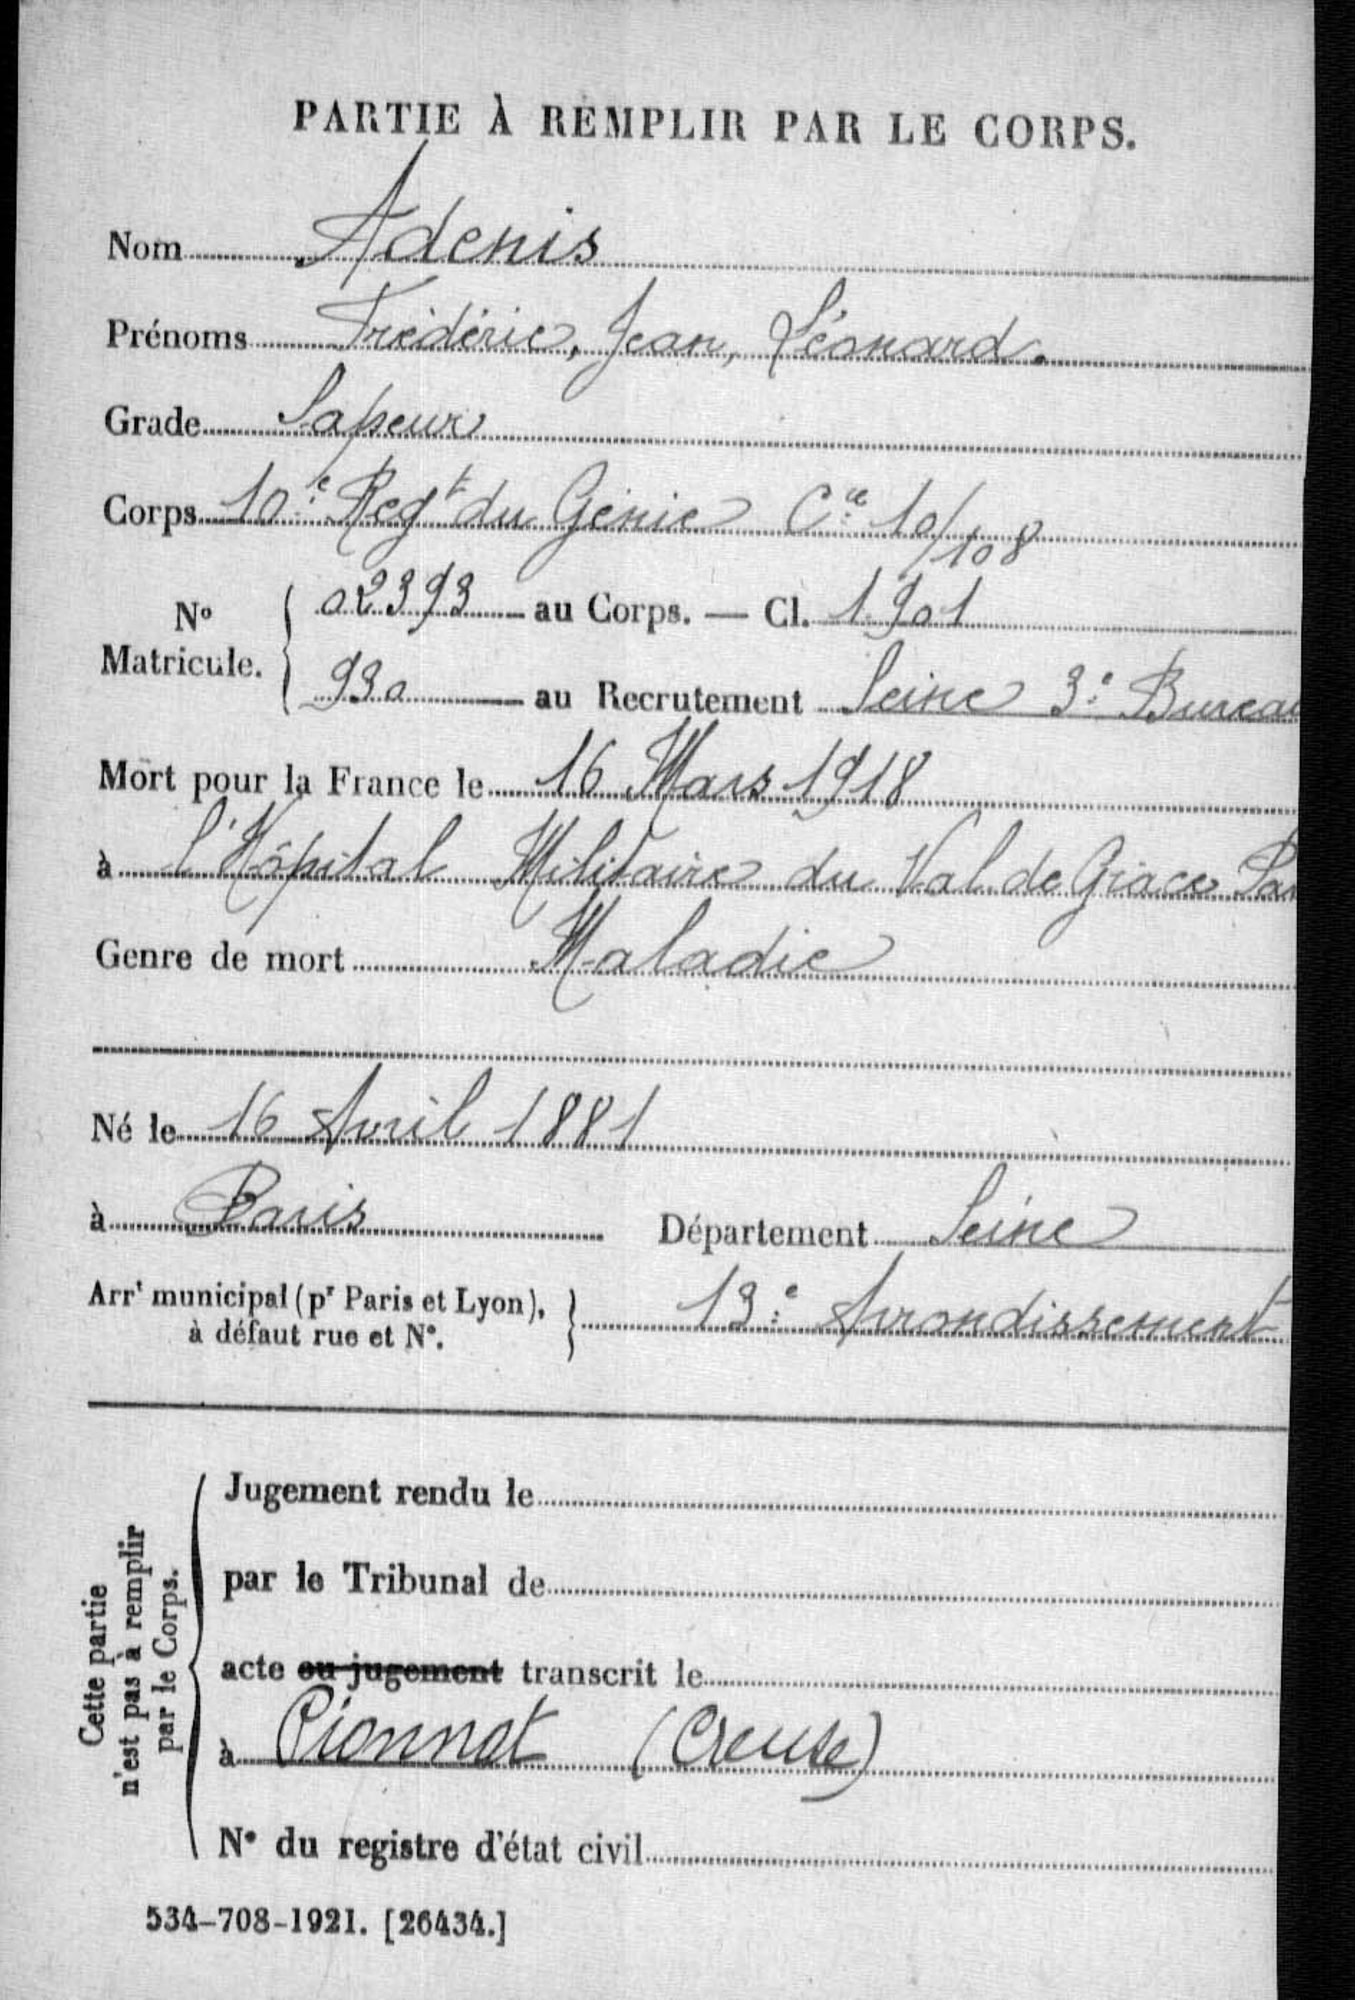 PARTIE À REMPLIR PAR LE CORPS.
Nom Adenis
Prénoms Frédéric, Jean, Léonard.
Grade Sapeur
Corps 10e Regt du Génie Cie 10/108
No Matricule. 02393 au Corps. — Cl. 1901
930 au Recrutement Seine 3e Bureau
Mort pour la France le 16 Mars 1918
à l'Hôpital Militaire du Val de Grace Par
Genre de mort Maladie
Né le 16 Avril 1881
à Paris Département Seine
Arrt municipal (pr Paris et Lyon), 13e Arrondissement
à défaut rue et No.
Cette partie
n'est pas à remplir
par le Corps.
Jugement rendu le
par le Tribunal de
acte ou jugement transcrit le
à Pionnat (Creuse)
No du registre d'état civil
534-708-1921. [26434.]